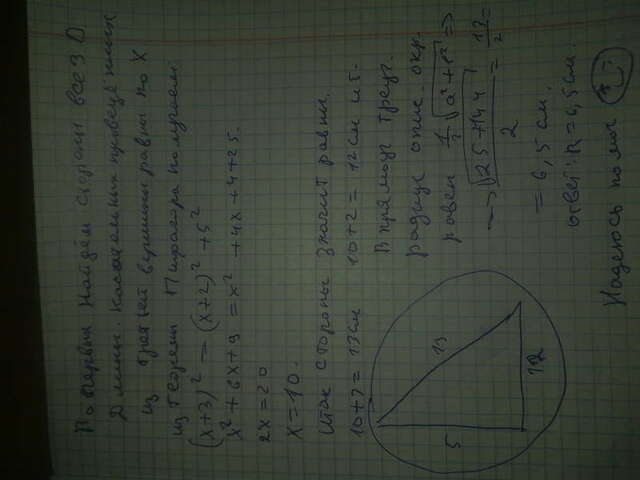 Во первых Найдём стороны все 3
Длины. Касательных проведённых
из третьей вершины равны по X
из теоремы Пифагора получаем
(x+3)² = (x+2)² + 5²
x² + 6x + 9 = x² + 4x + 4 + 25.
2x = 20
X = 10.
Итак стороны значит равны.
10+3 = 13 см 10+2 = 12 см и 5.
В прямоуг треуг.
радиус опис. окр.
равен 1/2 √a²+b² =>
=> √25+144 / 2 = 13/2 =
= 6,5 см.
ответ: R = 6,5 см.
Надеюсь помог
13
12
5